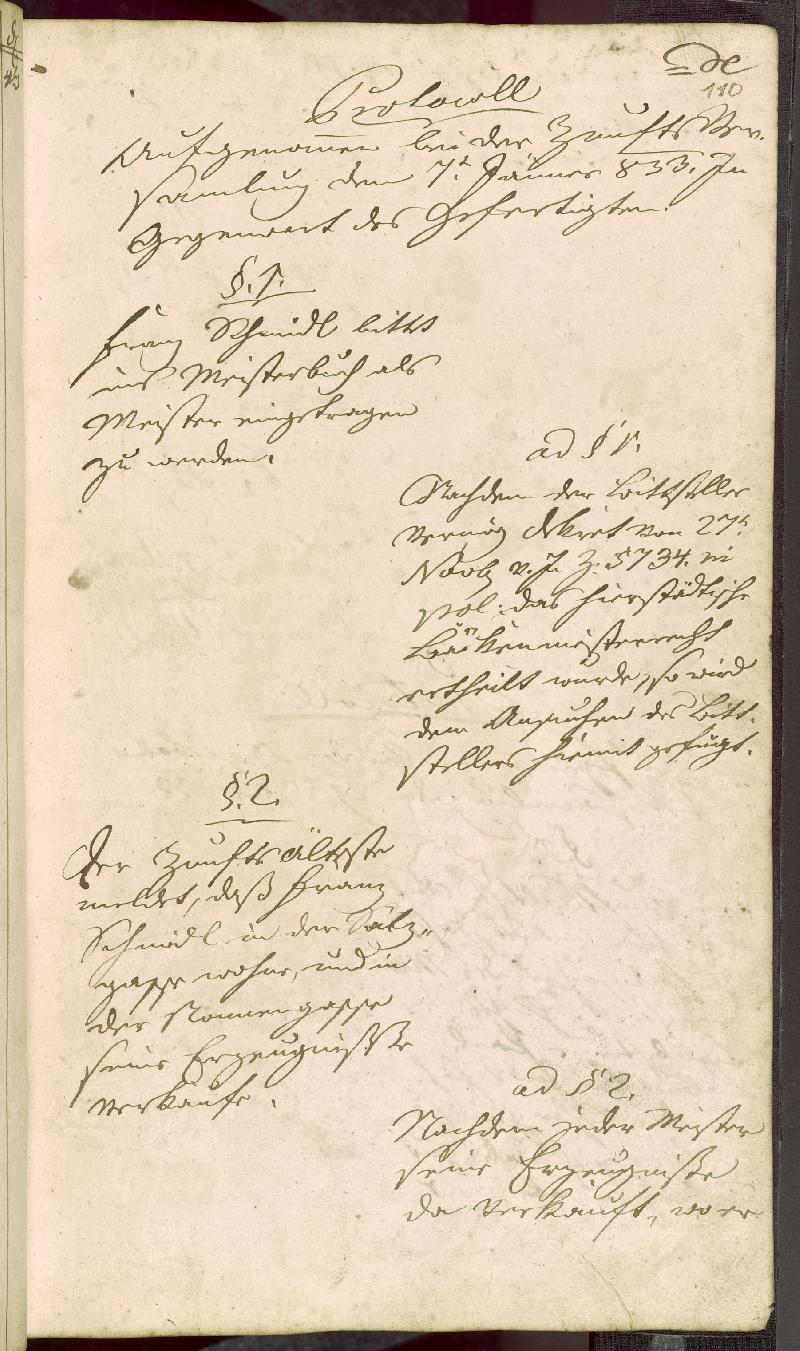 110
Protocoll
Aufgenommen bei der Zunfts Ver.
samlung dem 7t Jänner 833. In
Gegenwart des Gefertigten.
§. 1.
Franz Schmidl bittet
ins Meisterbuch als
Meister eingetragen
zu werden.
ad § 1.
Nachdem der Bittsteller
vermög Dekret von 27t
Novb v. J. Z. 5734. in
pol: das hierstädtische
Bäckenmeisterrecht
ertheilt wurde, so wird
dem Ansuchen des Bitt-
stellers hiemit gefügt.
§. 2.
Der Zunftsälteste
meldet, daß Franz
Schmidl in der Salz-
gasse wohne, und in
der Nonnengasse
seine Erzeugnisse
verkaufe.
ad § 2.
Nachdem jeder Meister
seine Erzeugnisse
da verkauft, wo er